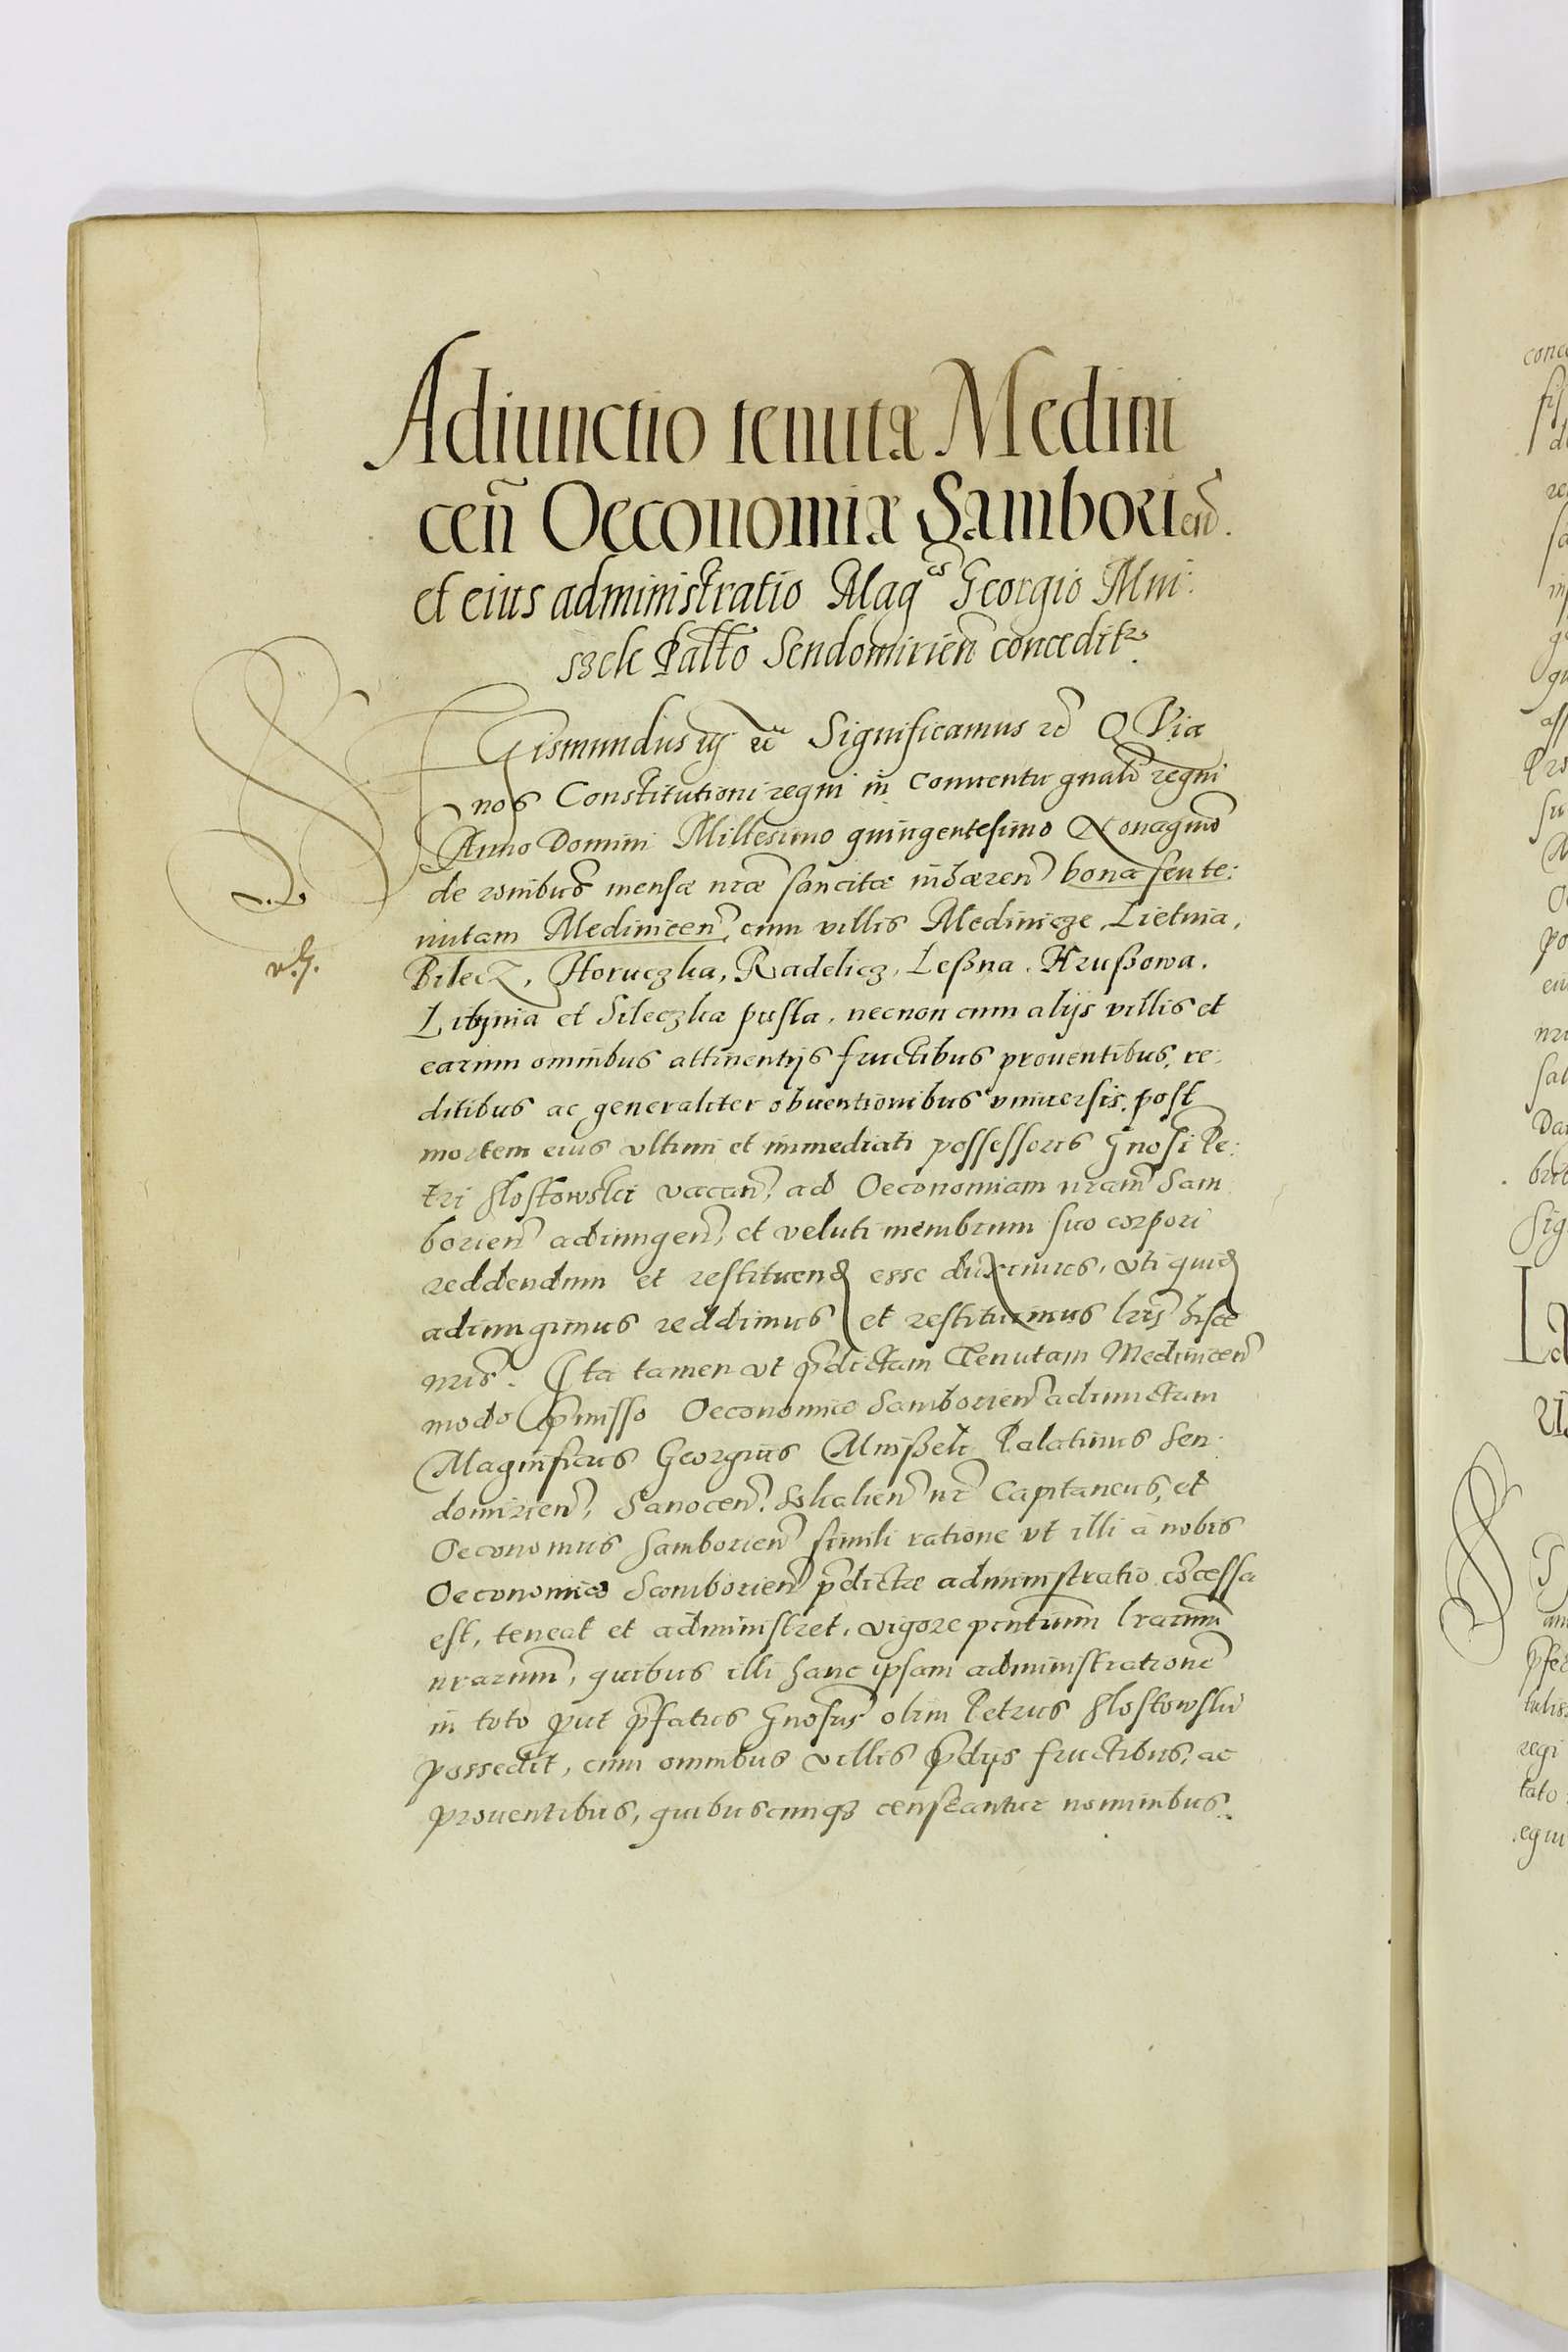 Adiunctio tenutæ Medini
ceñ Oeconomiæ Samborień.
et eius administratio Mag^co Georgio Mni:
szek Palto Sendomirień conceditr.
Sigismundus iij ec Significamus ec Quia
nos Constitutioni regni in Conuentu gnali regni
Anno Domini Millesimo quingentesimo Nonagmo
de bonibus mensæ nræ sancitæ inhæren bona seu te:
nutam Medinicen, cum villis Medinicze, Lietnia,
Bilecz, Horuczka, Radelicz, Leßna, Hrußowa,
Litynia et Sileczka pusta, necnon cum alijs villis et
earum omnibus attinentijs fructibus prouentibus, re:
ditibus ac generaliter obuentionibus vniuersis, post
mortem eius vltimi et immediati possessoris Gnosi Pe:
tri Hostowski vacan, ad Oeconomiam nram Sam
borien adiungen, et veluti membrum suo corpori
reddendum et restituend esse duximus, vti quid
adiungimus reddimus et restituimus lris hisce
nris. Ita tamen vt pdictam Tenutam Medinicen
modo pmisso Oeconomiæ Samborien adiunctam
Magnificus Georgius Mnißek Palatinus Sen
domirien, Sanocen, nr Capitaneus, et
Oeconomus Samborien simili ratione vt illi à nobis
Oeconomiæ Samborien pdictæ administratio cocessa
est, teneat et administret, vigore pntium lrarum
nrarum, quibus illi hanc ipsam administratione
in toto put pfatus Gnosus olim Petrus Hostowski
possedit, cum omnibus villis pdijs fructibus, ac
prouentibus, quibuscunqз censeantur nominibus.